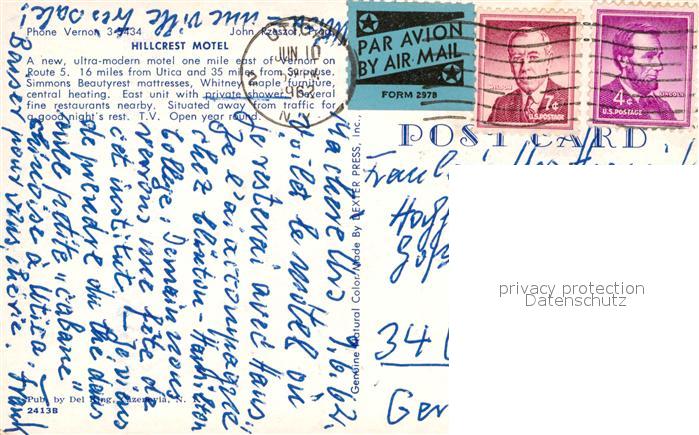 Phone Vernon 3-3434 John Rzeszot, Prop.
HILLCREST MOTEL
A new, ultra-modern motel one mile east of Vernon on
Route 5. 16 miles from Utica and 35 miles from Syracuse.
Simmons Beautyrest mattresses, Whitney maple furniture,
central heating. East unit with private shower. Several
fine restaurants nearby. Situated away from traffic for
a good night's rest. T.V. Open year round.
PAR AVION
BY AIR MAIL
FORM 2978
WILSON
7¢
U.S. POSTAGE
4¢
LINCOLN
U.S. POSTAGE
UTICA
JUN 10
1962
N.Y.
POST CARD
Genuine Natural Color Made By DEXTER PRESS, Inc.,
9.6.62.
Ma chère Urs
Voilà le motel où
je resterai avec Hans;
Je l'ai accompagné
chez Clinton-Hamilton
College; Demain nous
aurons une fête de
c'est institute. Je viens
de prendre du thé dans
une petite "cabane"
chinoise à Utica,
une ville très sale!
Baisers pour vous, chérie. Frank
Fraul.
34
Ger
Pub. by Del Ring, Cazenovia, N. Y.
2413B
privacy protection
Datenschutz